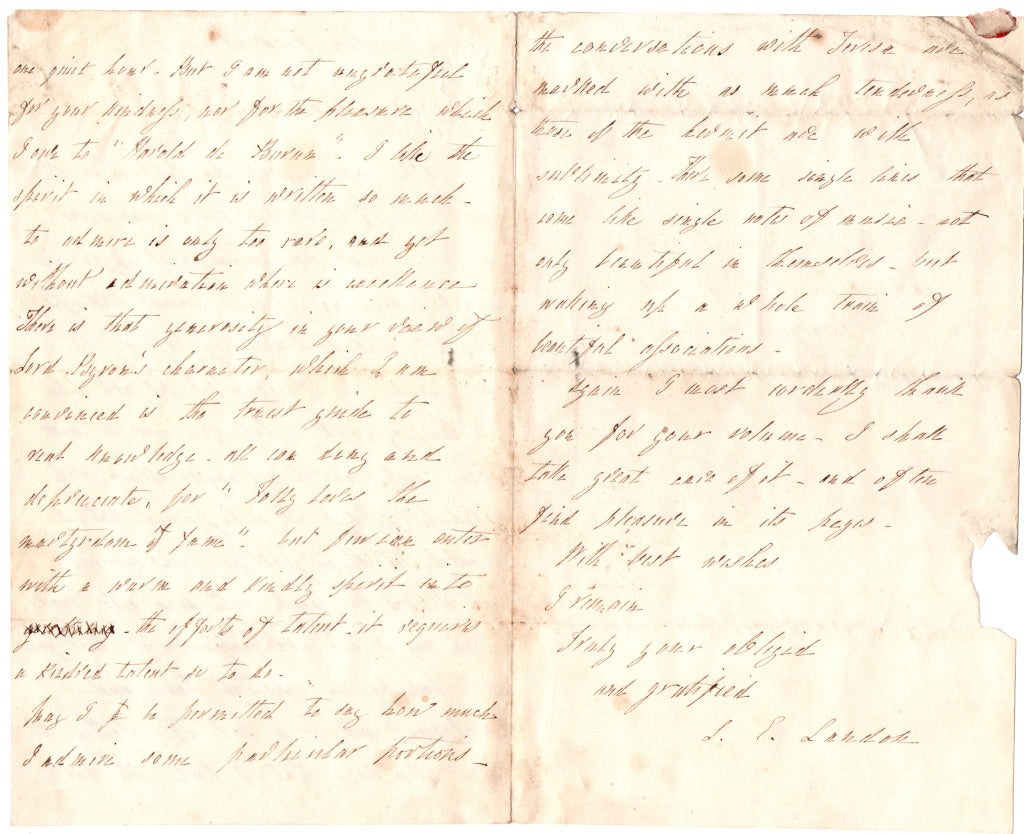 one quiet hour. But I am not ungrateful
for your kindness, nor for the pleasure which
I owe to "Harold de Burun". I like the
spirit in which it is written so much -
to admire is only too rare, and yet
without admiration where is excellence
There is that generosity in your view of
Lord Byron's character, which I am
convinced is the truest guide to
real knowledge. all can deny and
depreciate, for "Folly loves the
martyrdom of fame". but few can enter
with a warm and kindly spirit into
the efforts of talent - it requires
a kindred talent so to do.
May I be permitted to say how much
I admire some particular portions -
the conversations with Teresa are
marked with as much tenderness, as
those of the hermit are with
sublimity. There some single lines that
come like single notes of music - not
only beautiful in themselves - but
waking up a whole train of
beautiful associations -
Again I most cordially thank
you for your volume - I shall
take great care of it - and often
find pleasure in its pages -
With best wishes
I remain
Truly your obliged
and gratified
L. E. Landon